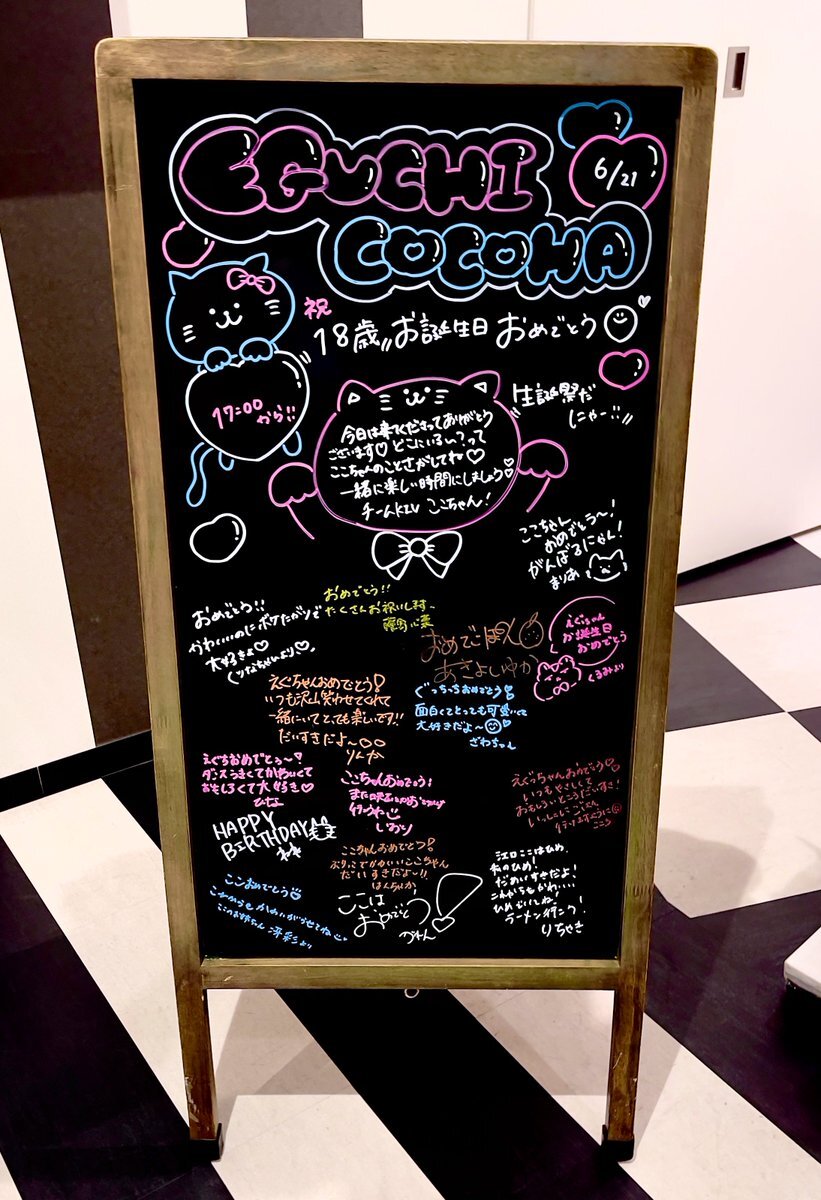 EGUCHI
COCOHA
6/21
祝
18歳"お誕生日おめでとう
17:00
から!!
生誕祭だ
にゃー!!"
今日は来てくださってありがとう
ございます♡どこにいる〜?って
ここちゃんのことさがしてね♡
一緒に楽しい時間にしましょう♡
チームKIV ここちゃん!
ここちゃん
おめでとう〜!
がんばるにゃん!
まりあ
おめでとう!!
かわいいのにボケたがりで
大好きよ♡
くツなちゃんより♡
おめでとう!!
たくさんお祝いします
おめでぽん
あきよしゆか
えぐちゃん
お誕生日
おめでとう
くるみより
えぐちゃんおめでとう!
いつも沢山笑わせてくれて
一緒にいてとても楽しいです!!
だいすきだよ〜♡♡
りんか
ぐっちっちおめでとう!
面白くてとっても可愛くて
大好きだよ〜
ざわちゃん
えぐちおめでとう〜!
ダンスうまくてかわいくて
おもしろくて大好き♡
ひな
ここちゃんおめでとう!
また
行こうや
しおり
えぐっちゃんおめでとう♡
いつもやさしくて
おもしろいところだいすき!
HAPPY
BIRTHDAY
ここちゃんおめでとう!
ぶりっこでかわいいここちゃん
だいすきだよ〜!!
はんちゅか
江口ここはひめ
私のひめ!
だぁいすきだよ!
これからもかわいい
ひめでいてね!
ラーメン行こ!
りちゃき
ここおめでとう
ここのお姉ちゃん 澪彩より
ここは
おめでとう!